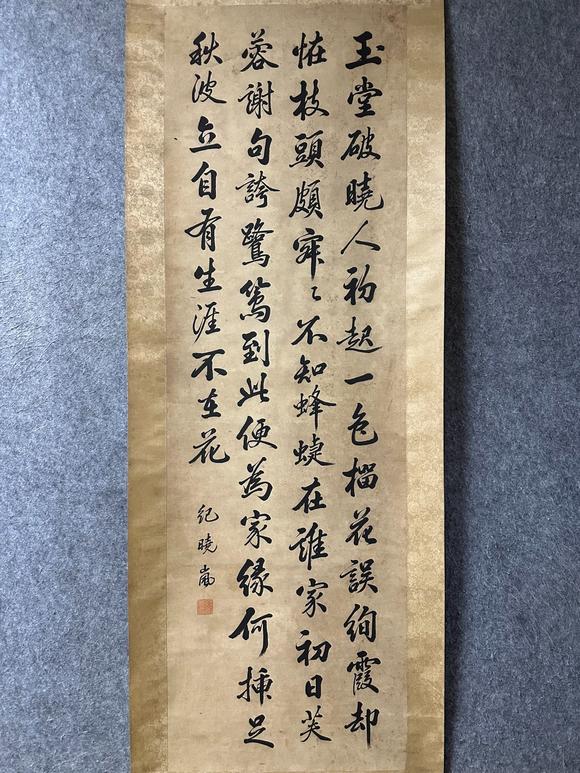 玉堂破曉人初起一色榴花誤絢霞却
恠枝頭頗寂〻不知蜂蜨在誰家初日芙
蓉謝句誇鷺到此便為家緣何插足
秋波立自有生涯不在花
紀曉嵐